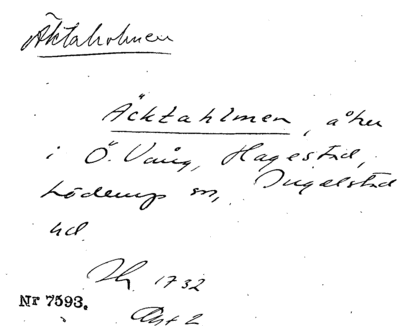 Äktaholmen
Äcktahlmen, åker
i Ö. Vång, Hagestad,
Löderup sn, Ingelstad
hd.
Lh. 1732
Akt 2
Nr 7593.